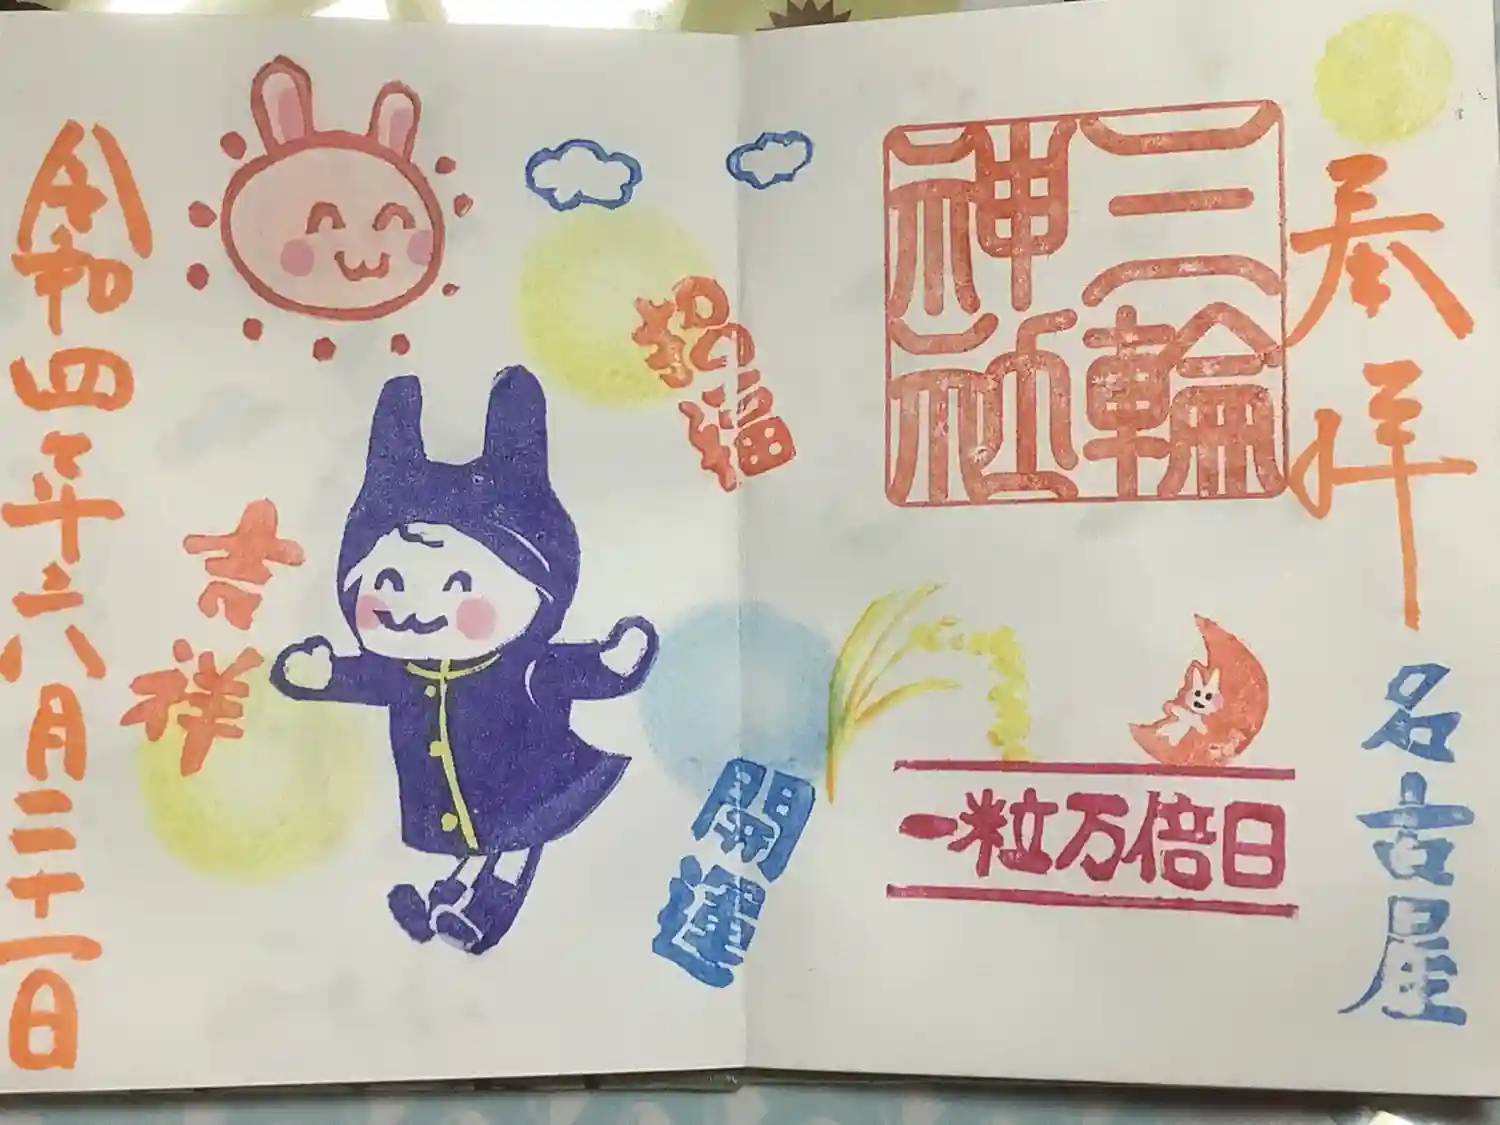 奉拝
名古屋
三輪
神社
一粒万倍日
招福
開運
吉祥
令和四年六月二十一日